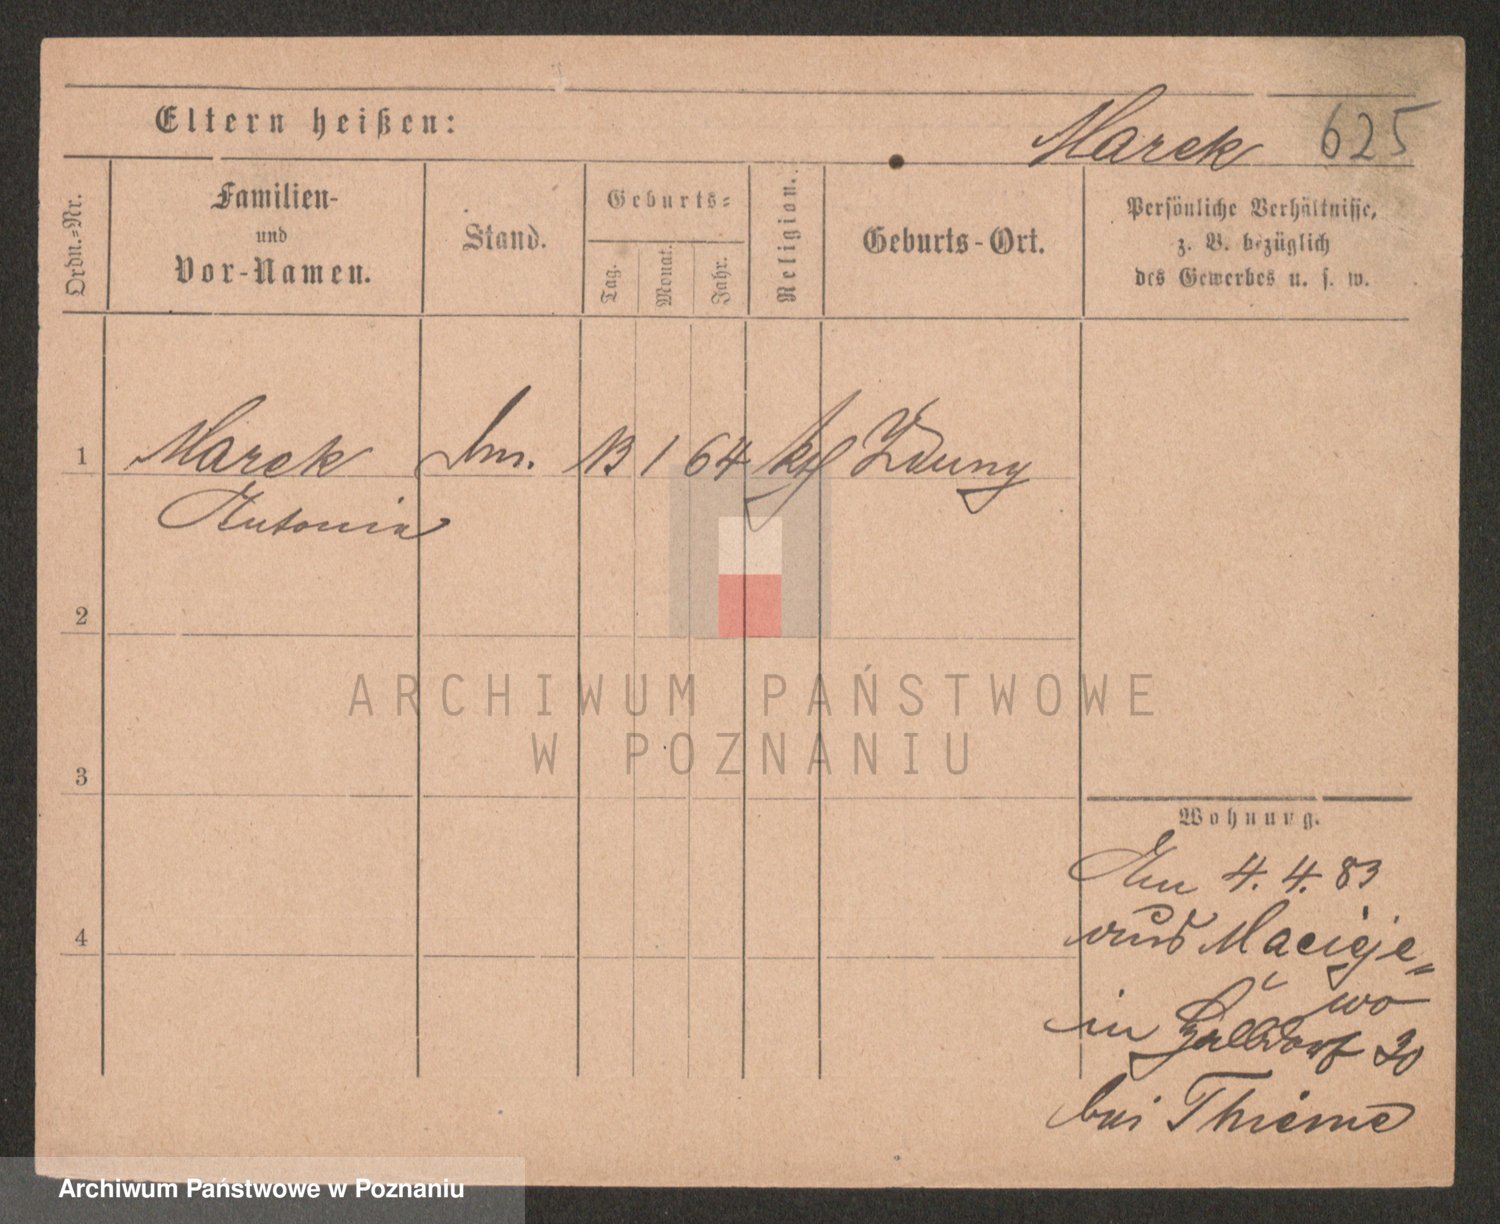 Eltern heißen:
Marek 625
Ordn.=Nr.
Familien-
und
Vor-Namen.
Stand.
Geburts=
Tag.
Monat.
Jahr.
Religion.
Geburts-Ort.
Persönliche Verhältnisse,
z. B. bezüglich
des Gewerbes u. s. w.
1 Marek 13 1 64 kth Zduny
Antonia
2
3
4
ARCHIWUM PAŃSTWOWE
W POZNANIU
Wohnung.
Am 4. 4. 83
aus Macieje=
wo
in 30
bei Thieme
Archiwum Państwowe w Poznaniu